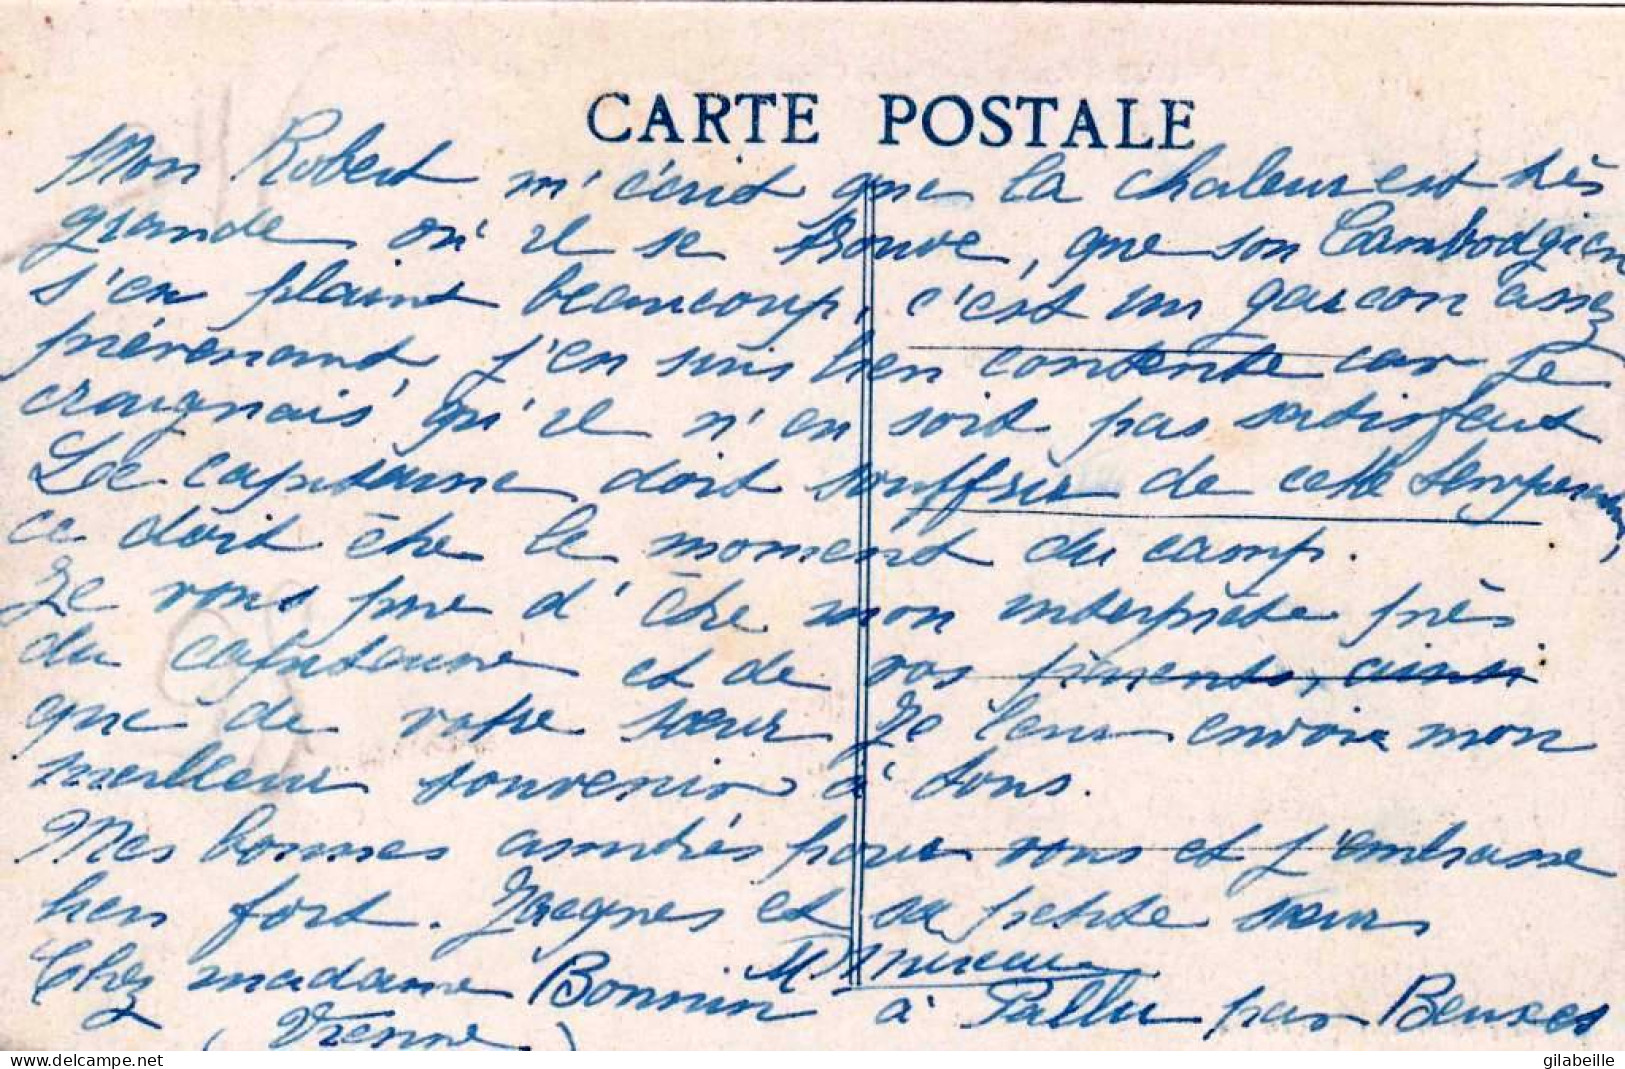 CARTE POSTALE
Mon Robert m'écrit que la chaleur est très
grande où il se trouve, que son Cambodgien
s'en plaint beaucoup, c'est un garçon assez
prévenant, j'en suis bien contente car je
craignais qu'il n'en soit pas satisfait
Le capitaine doit souffrir de cette température,
ce doit être le moment du camp.
Je vous prie d'être mon interprète près
du capitaine et de vos parents, ainsi
que de votre sœur Je leur envoie mon
meilleur souvenir à tous.
Mes bonnes amitiés pour vous et j'embrasse
bien fort. Jacques et sa petite sœur
M
Chez madame Bonnin à Pallu par Beuxes
(Vienne)
gilabeille